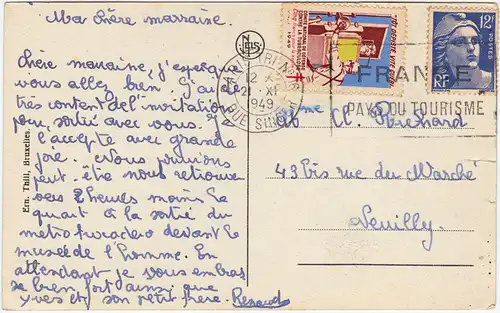 Ma chère marraine.
chère marraine, j'espère que
vous allez bien. J'ai été
très content de l'invitation
pour sortir avec vous. Et
j'accepte avec grande
joie. Nous pourrions
peut-être nous retrouver
vers 2 heures moins le
quart à la sortie du
métro trocadéro devant le
musée de l'homme. En
attendant je vous embras
se bien fort ainsi que
yves et son petit frère. Renaud
Ern. Thill, Bruxelles.
21 XI
1949
RUE SINGER
FRANCE
PAYS DU TOURISME
COMITÉ NATIONAL DE DÉFENSE
CONTRE LA TUBERCULOSE
1949
12F
RF
Mme Cl. Richard
43 bis rue du Marché
Neuilly